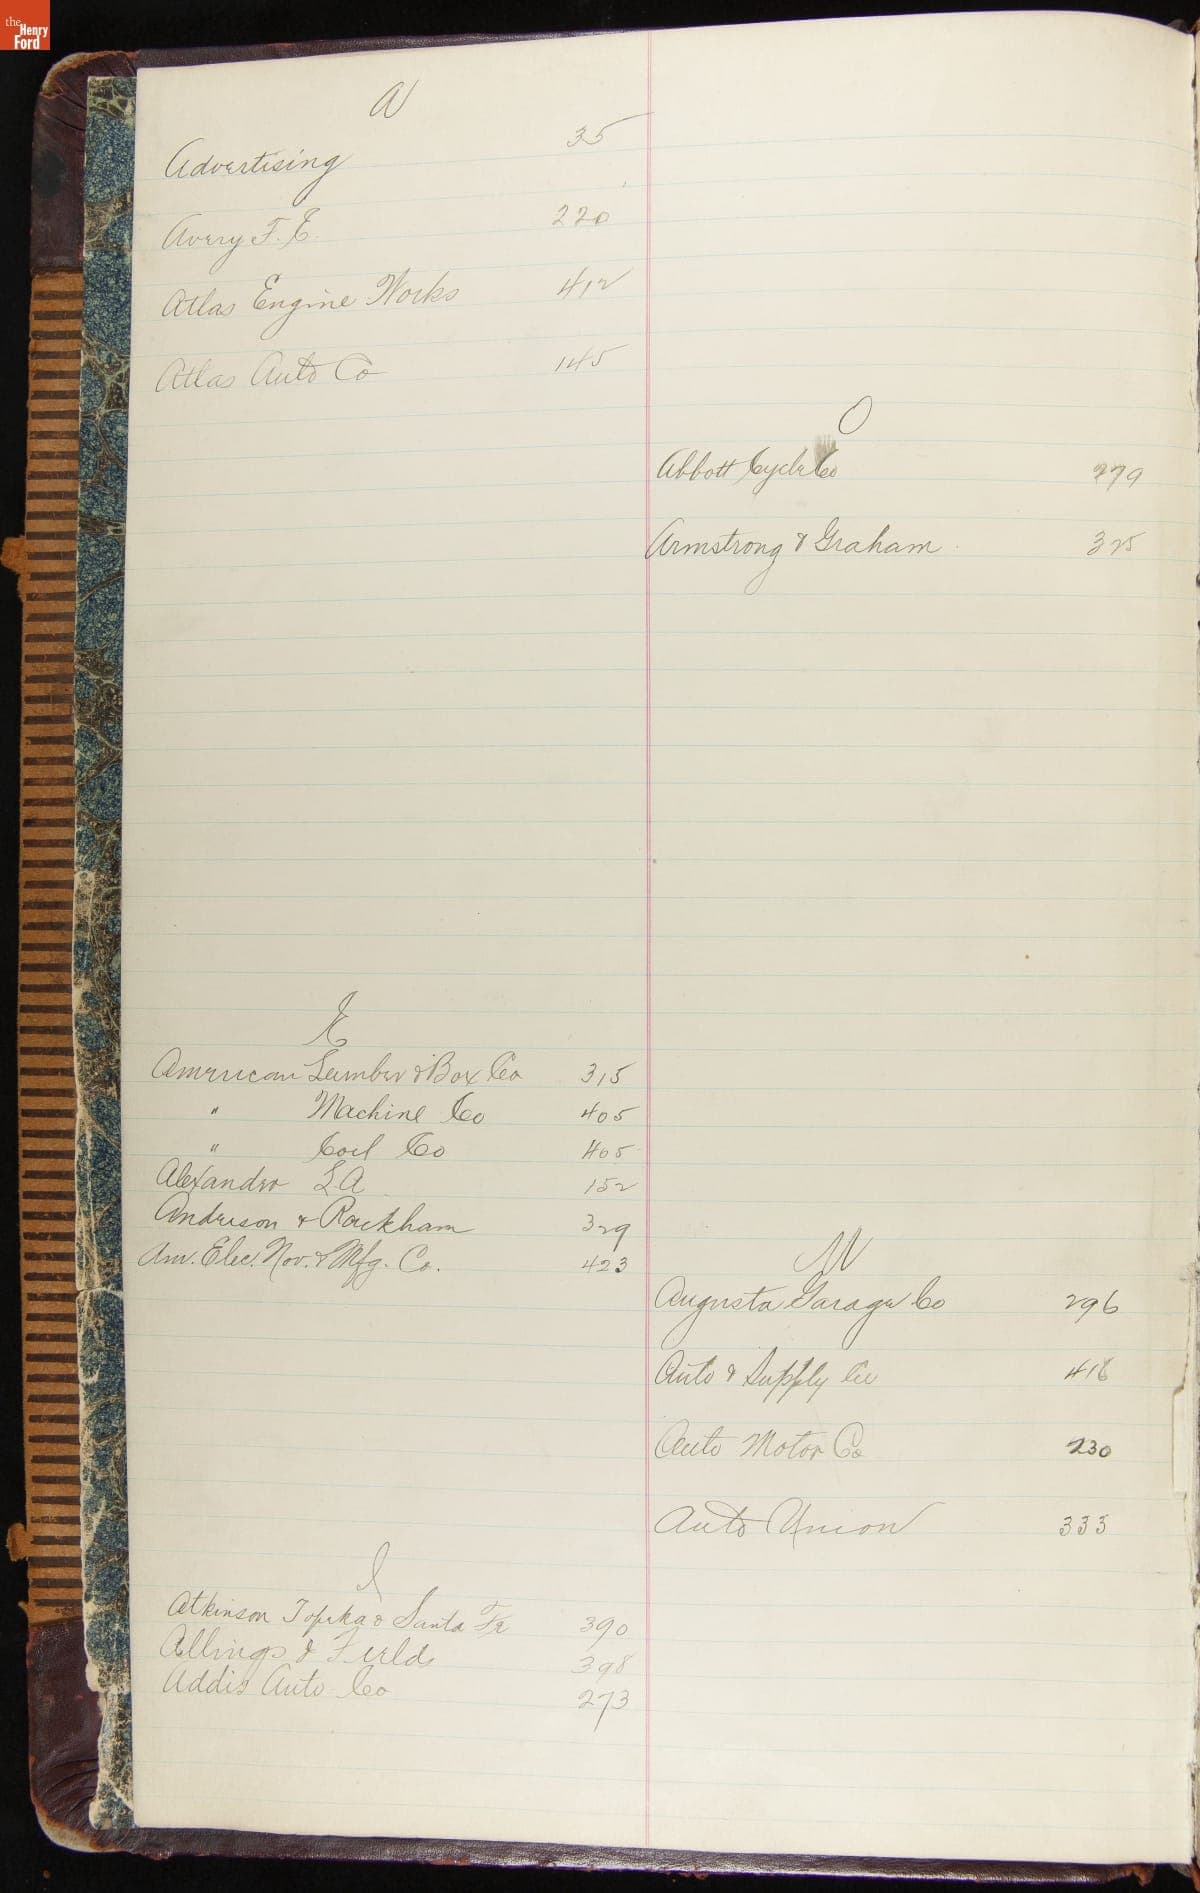 the
Henry
Ford
A
Advertising 35
Avery F. E. 220
Atlas Engine Works 412
Atlas Auto Co 145
E
American Lumber & Box Co 315
" Machine Co 405
" Coil Co 405
Alexander L A 152
Anderson & Rackham 329
Am. Elec. Nov. & Mfg. Co. 423
I
Atkinson Topeka & Santa Fe 390
Allings & Fields 398
Addis Auto Co 273
O
Abbott Cycle Co 279
Armstrong & Graham 325
U
Augusta Garage Co 296
Auto & Supply Co 418
Auto Motor Co 230
Auto Union 333